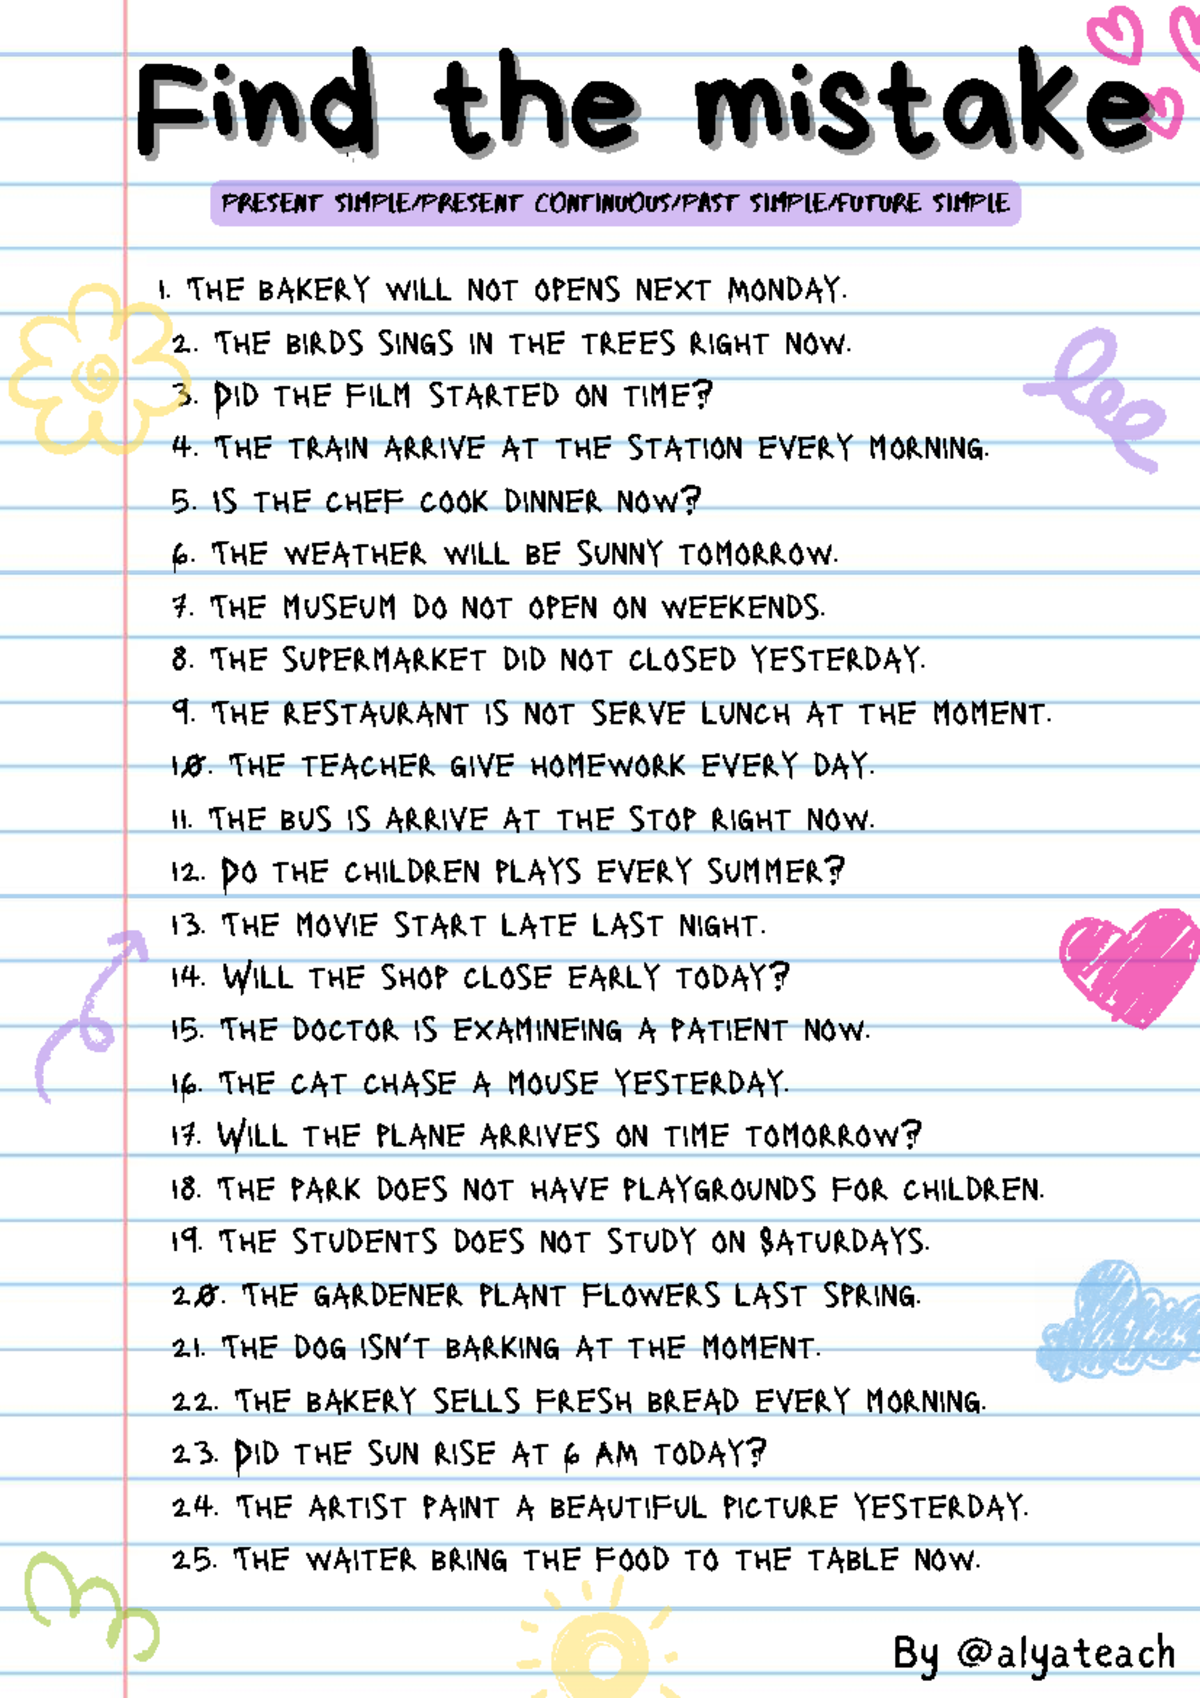 Find the mistake
PRESENT SIMPLE/PRESENT CONTINUOUS/PAST SIMPLE/FUTURE SIMPLE
1. THE BAKERY WILL NOT OPENS NEXT MONDAY.
2. THE BIRDS SINGS IN THE TREES RIGHT NOW.
3. DID THE FILM STARTED ON TIME?
4. THE TRAIN ARRIVE AT THE STATION EVERY MORNING.
5. IS THE CHEF COOK DINNER NOW?
6. THE WEATHER WILL BE SUNNY TOMORROW.
7. THE MUSEUM DO NOT OPEN ON WEEKENDS.
8. THE SUPERMARKET DID NOT CLOSED YESTERDAY.
9. THE RESTAURANT IS NOT SERVE LUNCH AT THE MOMENT.
10. THE TEACHER GIVE HOMEWORK EVERY DAY.
11. THE BUS IS ARRIVE AT THE STOP RIGHT NOW.
12. DO THE CHILDREN PLAYS EVERY SUMMER?
13. THE MOVIE START LATE LAST NIGHT.
14. WILL THE SHOP CLOSE EARLY TODAY?
15. THE DOCTOR IS EXAMINEING A PATIENT NOW.
16. THE CAT CHASE A MOUSE YESTERDAY.
17. WILL THE PLANE ARRIVES ON TIME TOMORROW?
18. THE PARK DOES NOT HAVE PLAYGROUNDS FOR CHILDREN.
19. THE STUDENTS DOES NOT STUDY ON SATURDAYS.
20. THE GARDENER PLANT FLOWERS LAST SPRING.
21. THE DOG ISN'T BARKING AT THE MOMENT.
22. THE BAKERY SELLS FRESH BREAD EVERY MORNING.
23. DID THE SUN RISE AT 6 AM TODAY?
24. THE ARTIST PAINT A BEAUTIFUL PICTURE YESTERDAY.
25. THE WAITER BRING THE FOOD TO THE TABLE NOW.
By @alyateach